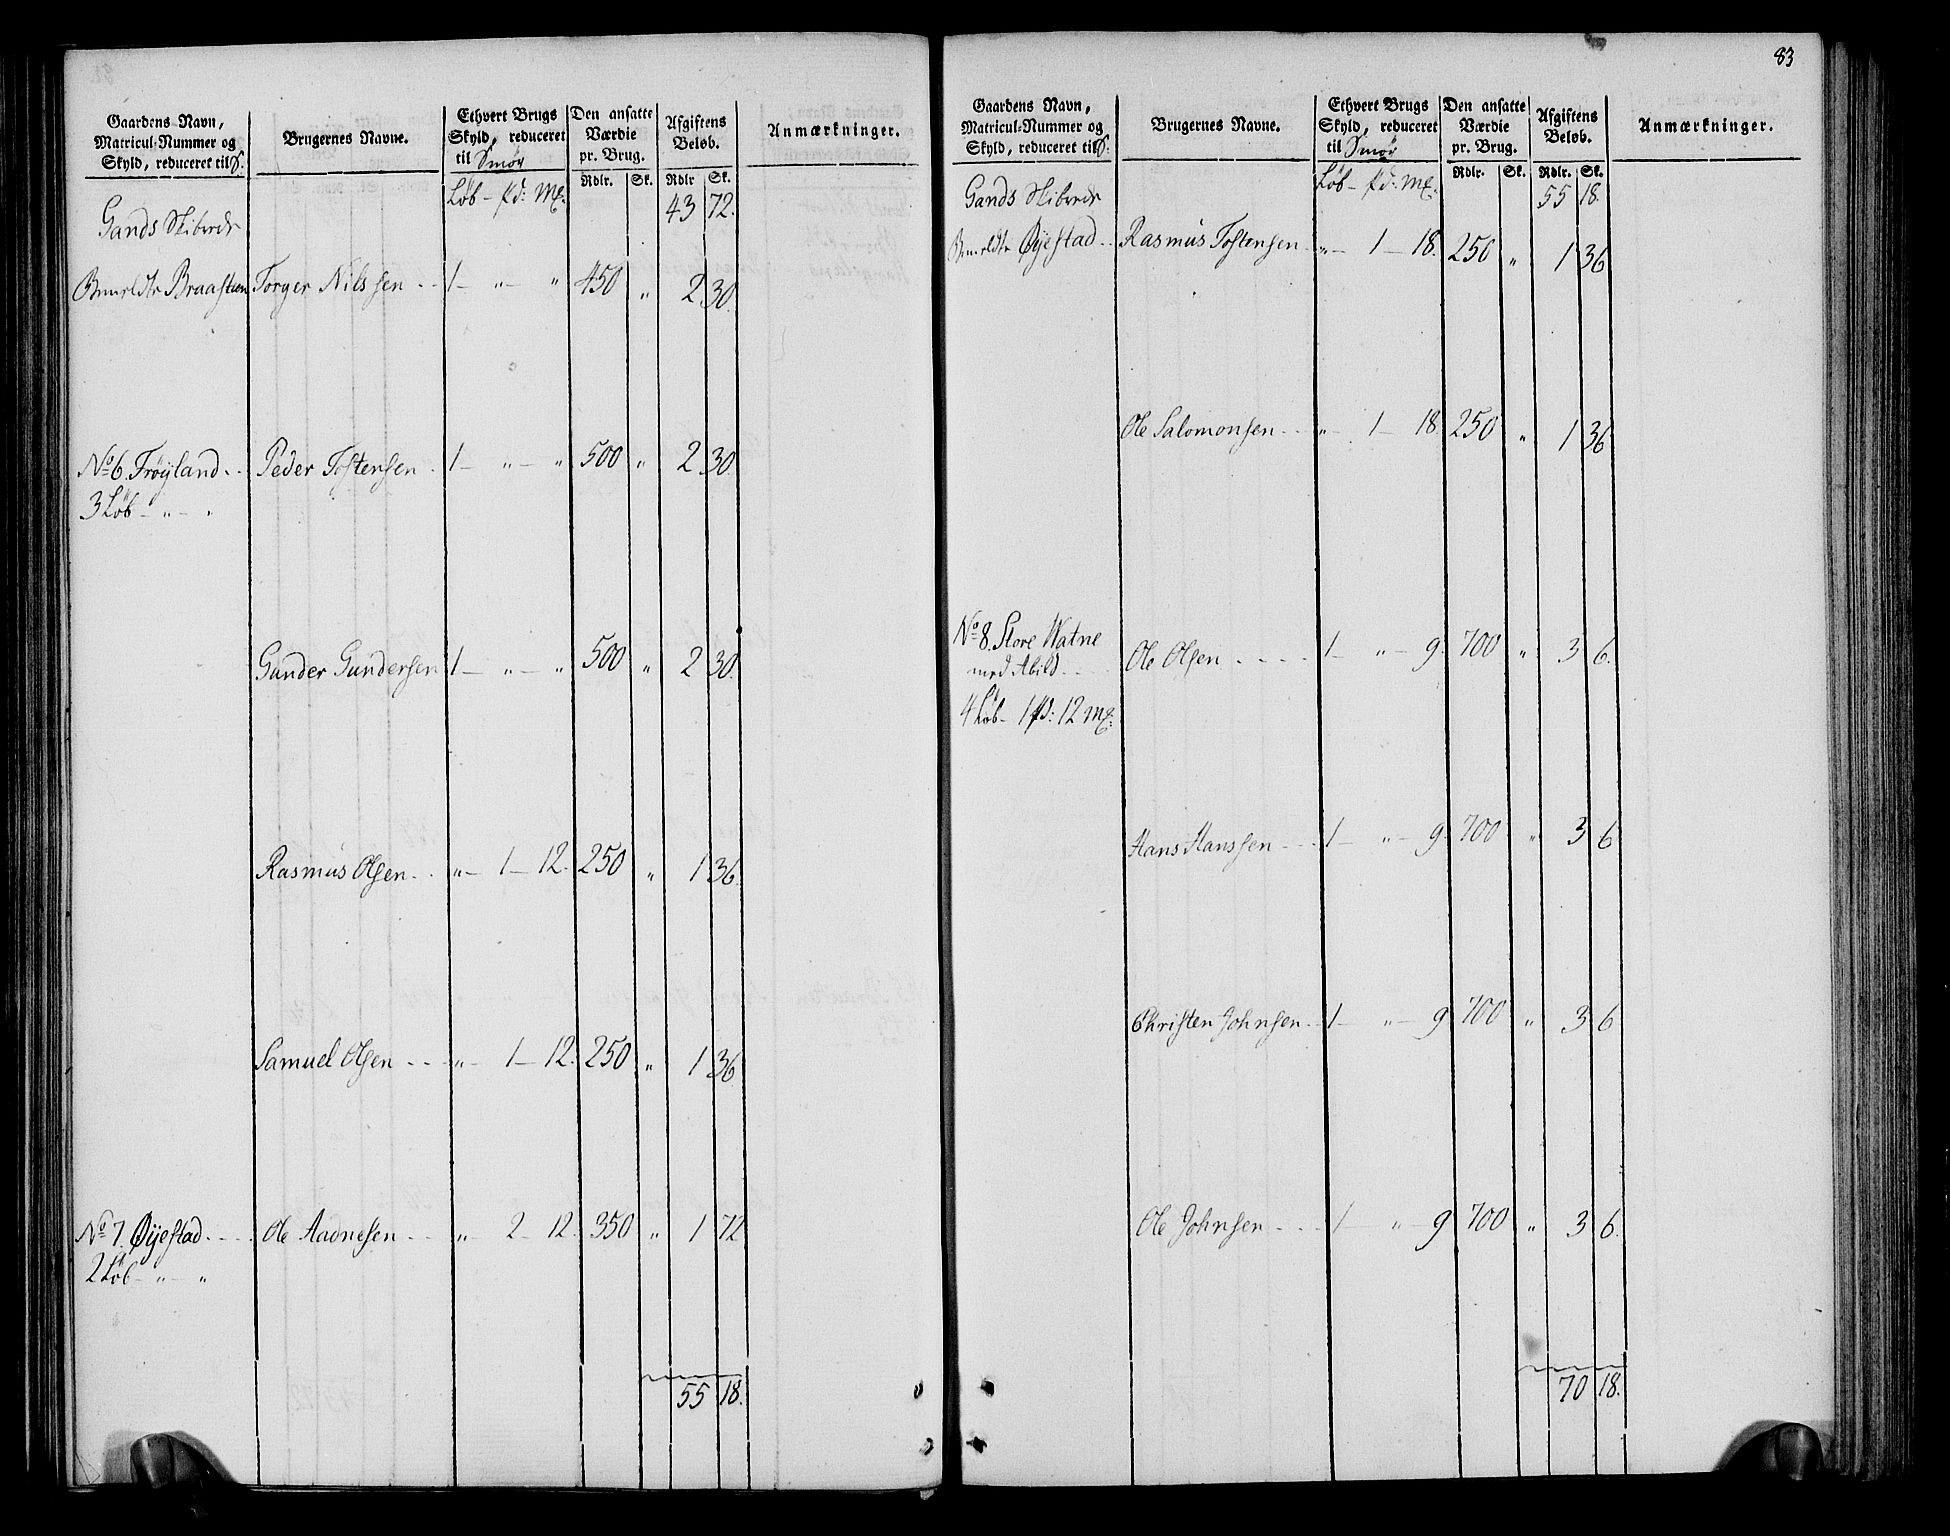 Gaardens Navn,
Matricul-Nummer og
Skyld, reduceret til
Brugernes Navne.
Ethvert Brugs
Skyld, reduceret
til Smør
Den ansatte
Værdie
pr. Brug.
Afgiftens
Beløb.
Anmærkninger.
Rdlr. Sk. Rdlr Sk.
Løb – pd: Mk:
Gands Skibrede 43 72.
Braastein Torger Nilssen – – 1 – „ – „ 450 „ 2 30.
No 6. Frøyland – – Peder Tostensen – 1 – „ – „ 500 „ 2 30.
3 Løb – „ – „
Gunder Gundersen 1 – „ – „ 500 „ 2 30.
Rasmus Olsen – – „ – 1 – 12. 250 „ 1 36.
Samuel Olsen – – – „ – 1 – 12. 250 „ 1 36.
No 7. Øyestad – – – Ole Aadnesen – – „ 2 – 12. 350 „ 1 72
2 Løb – „ – „
55 18.
83
Gaardens Navn,
Matricul-Nummer og
Skyld, reduceret til
Brugernes Navne.
Ethvert Brugs
Skyld, reduceret
til Smør
Den ansatte
Værdie
pr. Brug.
Afgiftens
Beløb.
Anmærkninger.
Rdlr. Sk. Rdlr. Sk.
Løb – pd: Mk:
Gands Skibrede 55 18.
Øyestad – – Rasmus Tostensen – „ – 1 – 18. 250 „ 1 36
Ole Salomonsen – – „ – 1 – 18. 250 „ 1 36
No 8. Store Watne
med Abild – – Ole Olsen – – – – 1 – „ – 9. 700 „ 3 6.
4 Løb – 1 pd: 12 Mk:
Hans Hanssen – – – 1 – „ – 9. 700 „ 3 6
Christen Johnsen – – 1 – „ – 9 700 „ 3 6
Ole Johnsen – – – 1 – „ – 9 700 „ 3 6.
70 18.